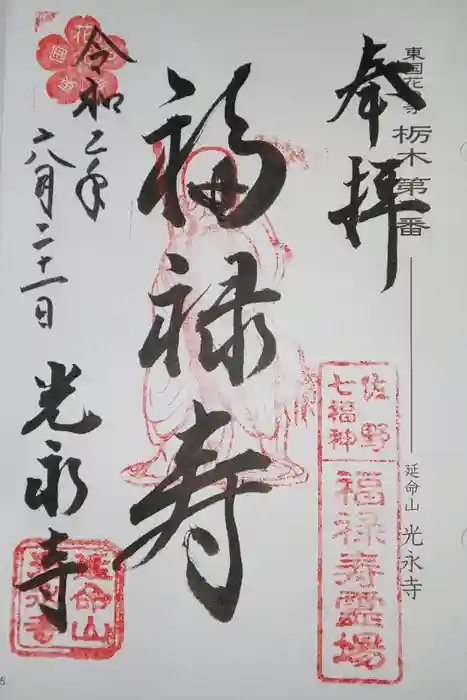 東国花の寺 栃木第一番
延命山 光永寺
奉拝
佐野
七福神
福禄寿霊場
福禄寿
令和二年
六月二十一日
光永寺
延命山
光永寺